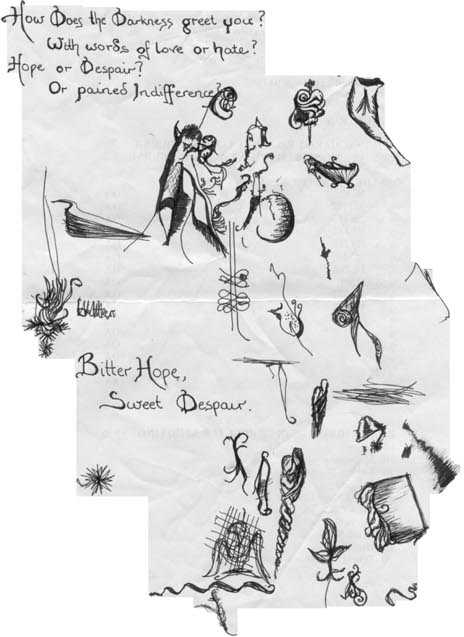 How Does the Darkness greet you?
With words of love or hate?
Hope or Despair?
Or pained Indifference?
Bitter Hope,
Sweet Despair.